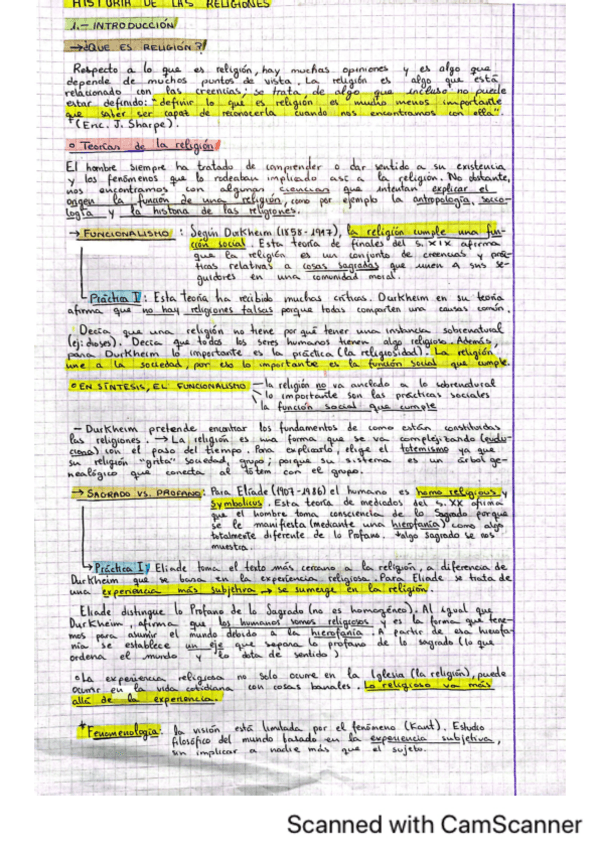 HISTORIA DE LAS RELIGIONES
1.- INTRODUCCIÓN
→¿QUE ES RELIGIÓN?
Respecto a lo que es religión, hay muchas opiniones y es algo que
depende de muchos puntos de vista. La religión es algo que está
relacionado con las creencias; se trata de algo que incluso no puede
estar definido: "definir lo que es religión es mucho menos importante
que saber ser capaz de reconocerla cuando nos encontramos con ella".
*(Eric. J. Sharpe).
o Teorías de la religión
El hombre siempre ha tratado de comprender o dar sentido a su existencia
y los fenómenos que lo rodeaban implicado así a la religión. No obstante,
nos encontramos con algunas ciencias que intentan explicar el
origen la función de una religión, como por ejemplo la antropología, socio-
logía y la historia de las religiones.
→ FUNCIONALISMO : Según Durkheim (1858-1917), la religión cumple una fun-
ción social. Esta teoría de finales del s. XIX afirma
que la religión es un conjunto de creencias y prác-
ticas relativas a cosas sagradas que unen a sus se-
guidores en una comunidad moral.
Práctica I : Esta teoría ha recibido muchas críticas. Durkheim en su teoría
afirma que no hay religiones falsas porque todas comparten una causas común.
Decía que una religión no tiene por qué tener una instancia sobrenatural
(ej: dioses). Decía que todos los seres humanos tienen algo religioso. Además,
para Durkheim lo importante es la práctica (la religiosidad). La religión
une a la sociedad, por eso lo importante es la función social que cumple.
o EN SÍNTESIS, EL FUNCIONALISMO — la religión no va anclado a lo sobrenatural
lo importante son las prácticas sociales
la función social que cumple
- Durkheim pretende encontrar los fundamentos de como están constituidas
las religiones. → La religión es una forma que se va complejitando (evolu-
ciona) con el paso del tiempo. Para explicarlo, elige el totemismo ya que
su religión "grita" sociedad, grupo; porque su sistema es un árbol ge-
nealógico que conecta al tótem con el grupo.
→ SAGRADO VS. PROFANO : Para Elíade (1907-1986) el humano es homo religious y
Symbolicus. Esta teoría de mediados del s. XX afirma
que el hombre toma consciencia de lo Sagrado porque
se le manifiesta (mediante una hierofanía) como algo
totalmente diferente de lo Profano. *algo sagrado se nos
muestra.
Práctica I : Eliade toma el texto más cercano a la religión, a diferencia de
Durkheim que se basa en la experiencia religiosa. Para Eliade se trata de
una experiencia más subjetiva → se sumerge en la religión.
Eliade distingue lo Profano de lo Sagrado (no es homogéneo). Al igual que
Durkheim, afirma que los humanos somos religiosos y es la forma que tene-
mos para asumir el mundo debido a la hierofanía. A partir de esa hierofa-
nía se establece un eje que separa lo profano de lo sagrado (lo que
ordena el mundo y lo dota de sentido)
o La experiencia religiosa no solo ocurre en la Iglesia (la religión), puede
ocurrir en la vida cotidiana con cosas banales. Lo religioso va más
allá de la experiencia.
*Fenomenología: la visión está limitada por el fenómeno (Kant). Estudio
filosófico del mundo basado en la experiencia subjetiva,
sin implicar a nadie más que el sujeto.
Scanned with CamScanner